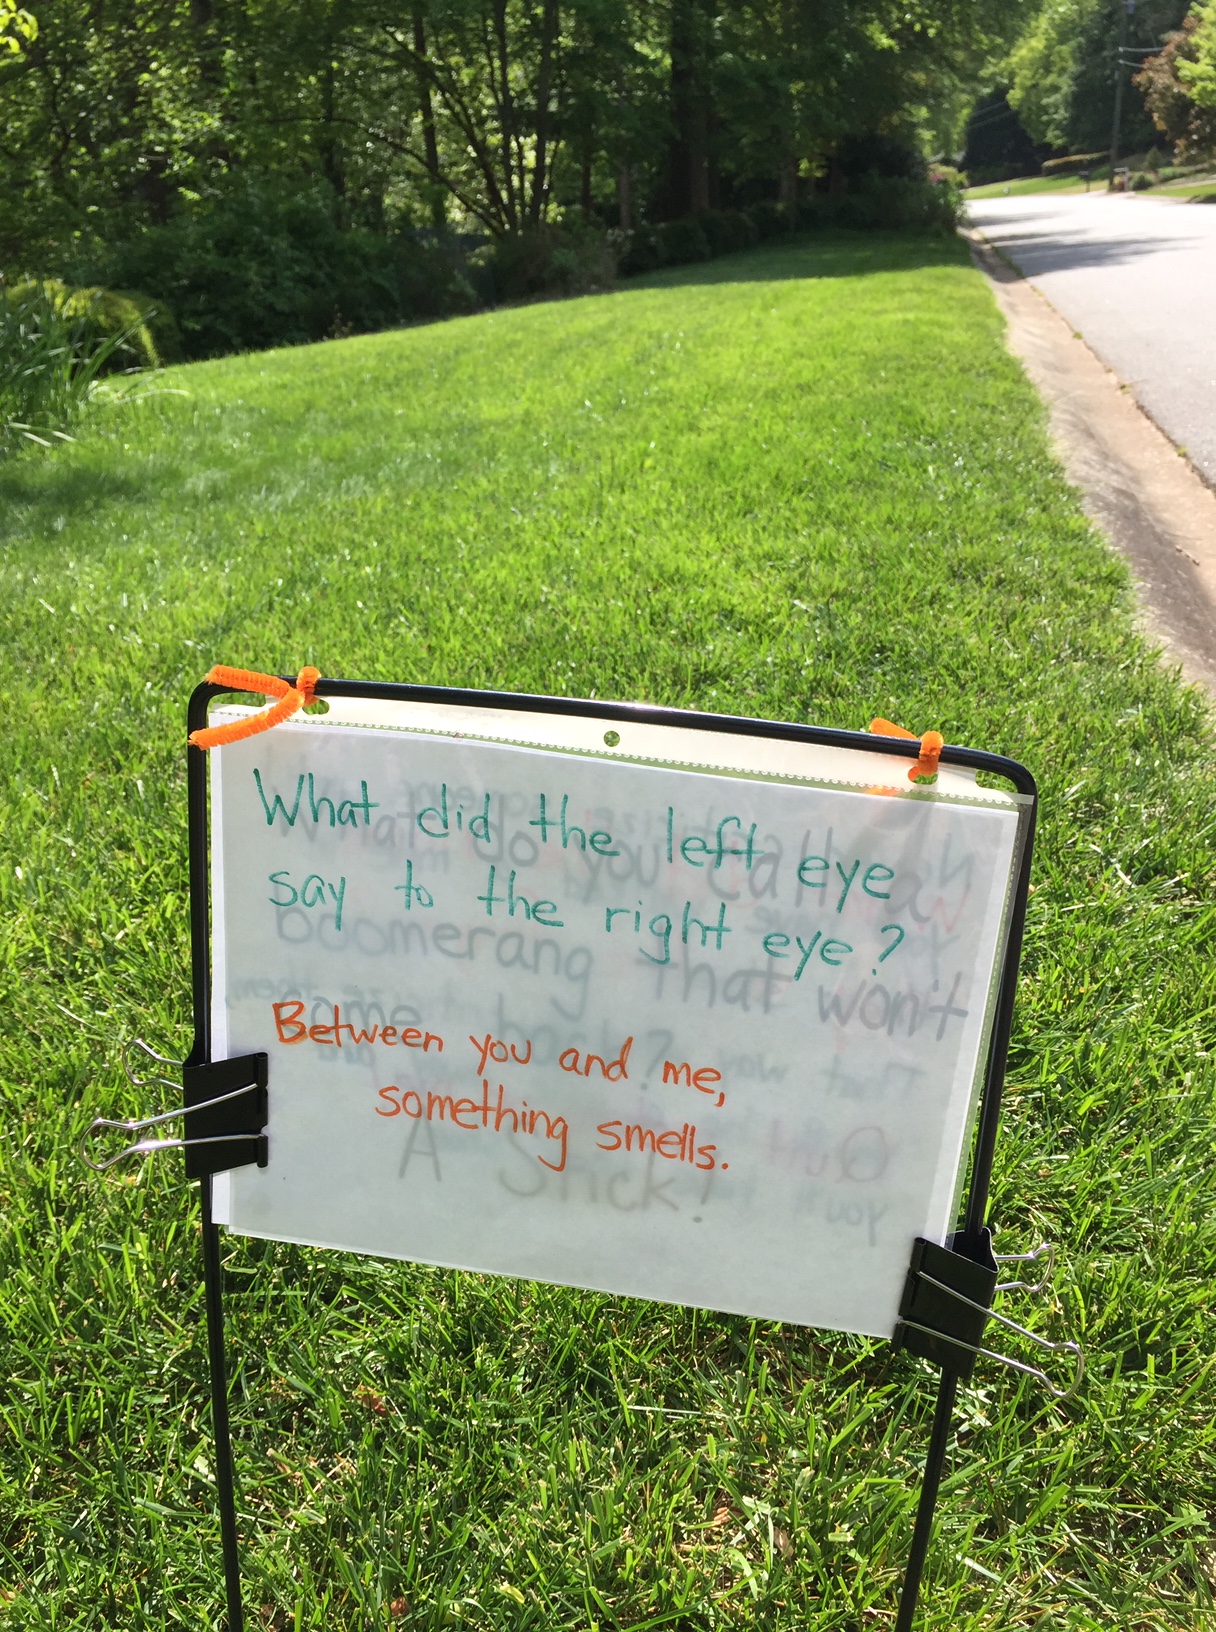 What did the left eye
say to the right eye?
Between you and me,
something smells.
What do you call a
boomerang that won't
come back?
A Stick!